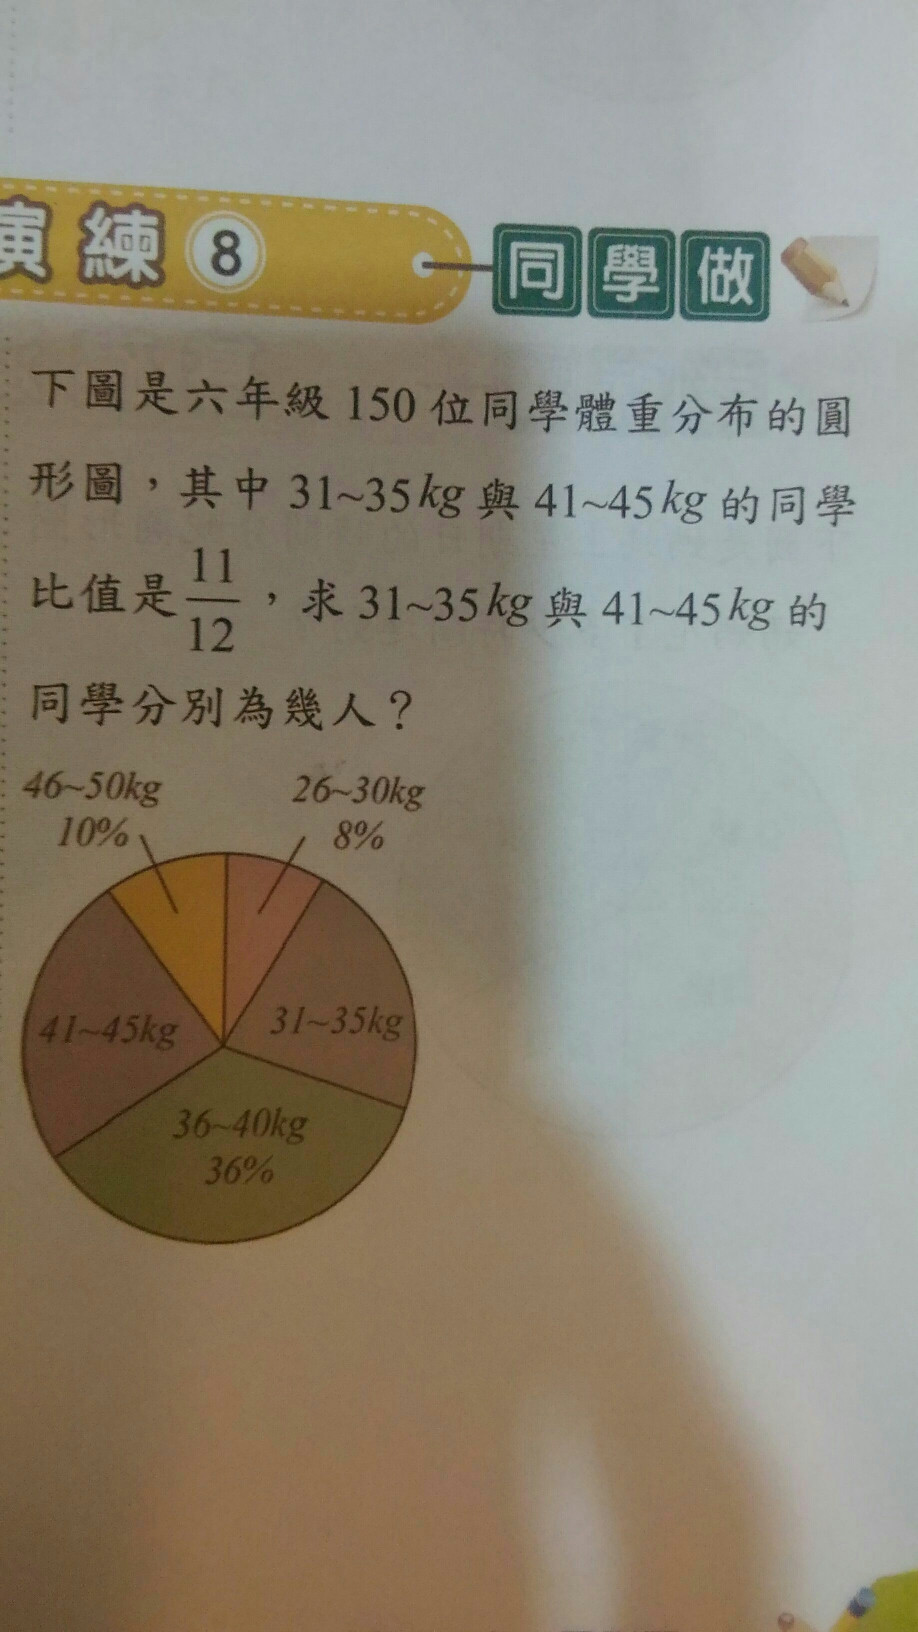 演練 8 同學做
下圖是六年級 150 位同學體重分布的圓
形圖，其中 31~35kg 與 41~45kg 的同學
比值是 11/12，求 31~35kg 與 41~45kg 的
同學分別為幾人？
46~50kg 26~30kg
10% 8%
41~45kg 31~35kg
36~40kg
36%